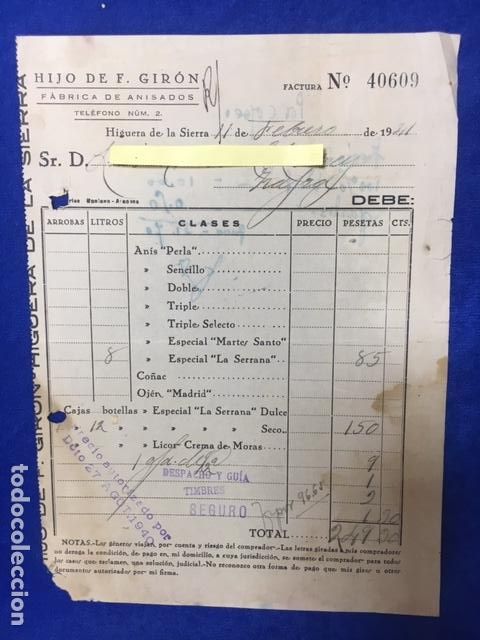 HIJO DE F. GIRÓN
FÁBRICA DE ANISADOS
TELÉFONO NÚM. 2.
FACTURA Nº 40609
Higuera de la Sierra 11 de Febrero de 1941
Sr. D.
DEBE:
ARROBAS LITROS CLASES PRECIO PESETAS CTS.
Anís "Perla"
» Sencillo
» Doble
» Triple
» Triple Selecto
» Especial "Martes Santo"
8 » Especial "La Serrana" 85
Coñac
Ojén "Madrid"
Cajas botellas » Especial "La Serrana" Dulce
» 12 » » » » Seco 150
» » Licor Crema de Moras
9
DESPACHO Y GUÍA 1
TIMBRES 2
SEGURO 1 30
TOTAL 249 30
Precio autorizado por
Dto 27 AGT. 1940
NOTAS.-Los géneros viajan, por cuenta y riesgo del comprador.-Las letras giradas a mis compradores
no deroga la condición, de pago en, mi domicilio, a cuya jurisdicción, se somete el comprador para todos
los casos que reclamen, una solución, judicial.-No reconozco otra forma de pago que mis giros u otros
documentos autorizados por mi firma.
HIJO DE F. GIRÓN HIGUERA DE LA SIERRA
todocoleccion